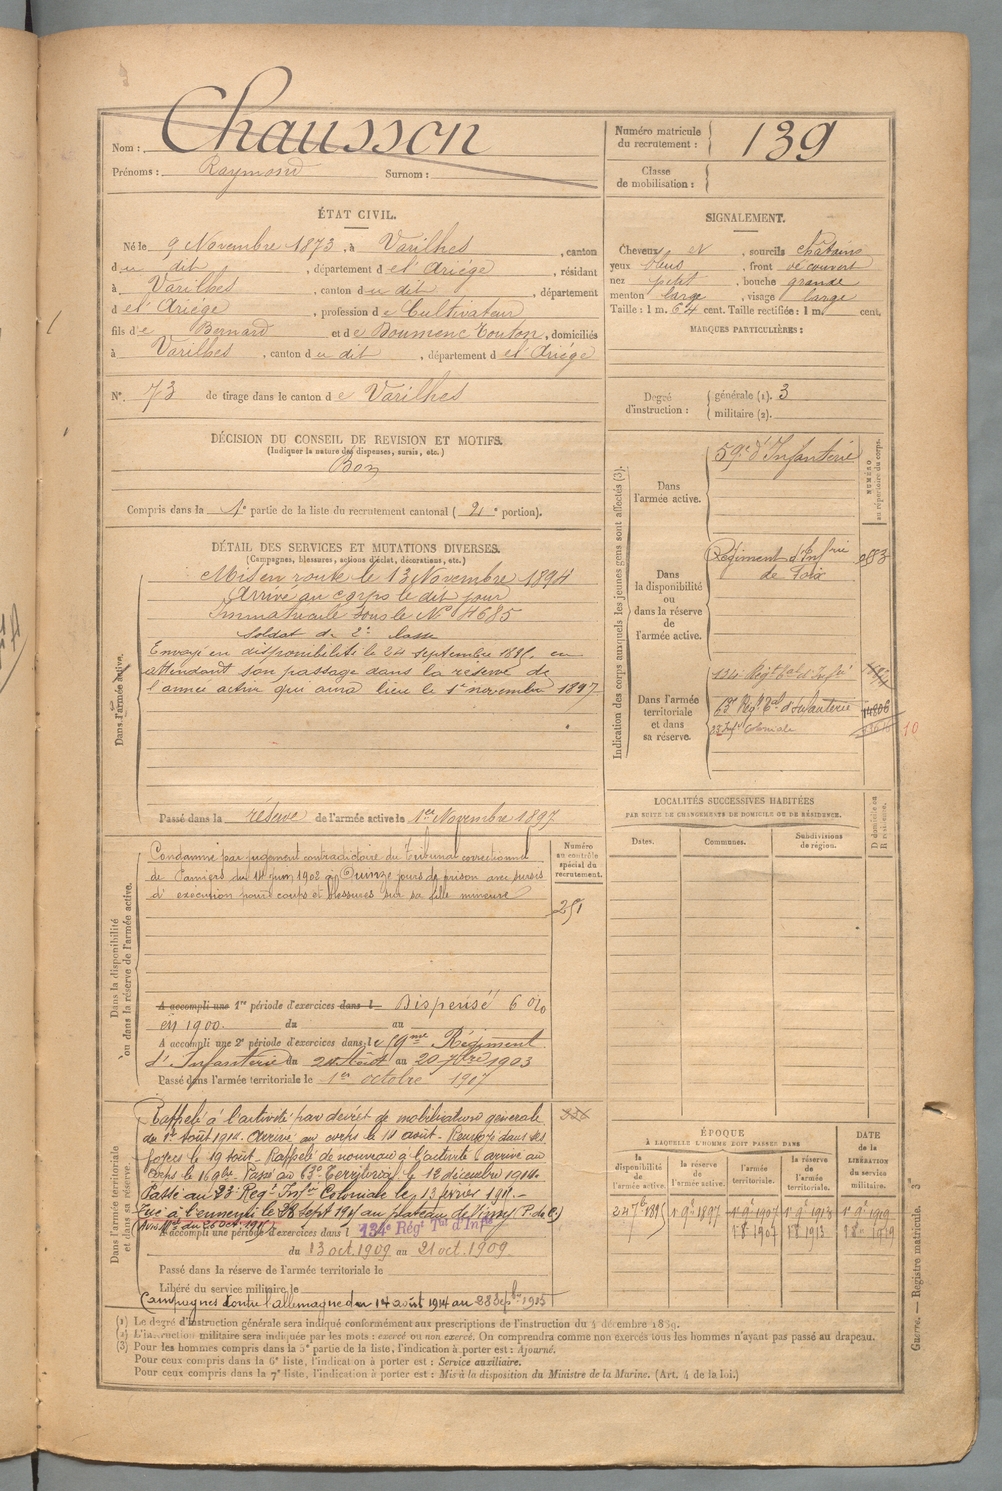 Nom : Chausson
Prénoms : Raymond Surnom :
Numéro matricule du recrutement : 139
Classe de mobilisation :
ÉTAT CIVIL.
Né le 9 Novembre 1873, à Varilhes, canton
du dit, département de l'Ariège, résidant
à Varilhes, canton du dit, département
de l'Ariège, profession de Cultivateur
fils de Bernard et de Boumenc Toulon, domiciliés
à Varilhes, canton du dit, département de l'Ariège
N° 73 de tirage dans le canton de Varilhes
SIGNALEMENT.
Cheveux et, sourcils châtains
yeux bleus, front découvert
nez petit, bouche grande
menton large, visage large
Taille : 1 m. 64 cent. Taille rectifiée : 1 m. cent.
MARQUES PARTICULIÈRES :
Degré d'instruction : générale (1). 3
militaire (2).
DÉCISION DU CONSEIL DE REVISION ET MOTIFS.
(Indiquer la nature des dispenses, sursis, etc.)
Bon
Compris dans la 1e partie de la liste du recrutement cantonal (2e portion).
DÉTAIL DES SERVICES ET MUTATIONS DIVERSES.
(Campagnes, blessures, actions d'éclat, décorations, etc.)
Dans l'armée active.
Mis en route le 13 Novembre 1894
Arrivé au corps le dit jour
Immatriculé sous le N° 4685
Soldat de 2e classe
Envoyé en disponibilité le 24 septembre 1895 en
attendant son passage dans la réserve de
l'armée active qui aura lieu le 1er novembre 1897
Passé dans la réserve de l'armée active le 1er Novembre 1897
Indication des corps auxquels les jeunes gens sont affectés (3).
NUMÉRO au répertoire du corps.
Dans l'armée active.
59e d'Infanterie
Dans la disponibilité ou dans la réserve de l'armée active.
Régiment d'Infrie de Foix 2883
Dans l'armée territoriale et dans sa réserve.
134e Régt Tal d'Infie
Régt Tal d'Infanterie
23e Infie Coloniale
10
Dans la disponibilité ou dans la réserve de l'armée active.
Condamné par jugement contradictoire du Tribunal correctionnel
de Pamiers du 14 juin 1902 à Quinze jours de prison avec sursis
d'exécution pour coups et blessures sur sa fille mineure
Numéro au contrôle spécial du recrutement.
251
A accompli une 1re période d'exercices dans l Dispensé 6 0/0
en 1900. du au
A accompli une 2e période d'exercices dans le 59me Régiment
d'Infanterie du 24 Août au 20 7bre 1903
Passé dans l'armée territoriale le 1er octobre 1907
LOCALITÉS SUCCESSIVES HABITÉES
PAR SUITE DE CHANGEMENTS DE DOMICILE OU DE RÉSIDENCE.
Dates. Communes. Subdivisions de région. D domicile ou R résidence.
Dans l'armée territoriale et dans sa réserve.
Rappelé à l'activité par décret de mobilisation générale
du 1er Août 1914. Arrivé au corps le 14 août. Renvoyé dans ses
foyers le 19 août. Rappelé de nouveau à l'activité arrivé au
corps le 16 9bre. Passé au 63e Territorial le 12 décembre 1914.
Passé au 23e Régt Infie Coloniale le 13 février 1915.
Tué à l'ennemi le 28 sept 1915 au plateau de Vimy P. de C.)
A accompli une période d'exercices dans l 134e Régt Tal d'Infie
du 13 oct. 1909 au 21 oct. 1909
Passé dans la réserve de l'armée territoriale le
Libéré du service militaire le
Campagnes Contre l'Allemagne du 14 août 1914 au 28 Septbre 1915
ÉPOQUE
À LAQUELLE L'HOMME DOIT PASSER DANS
la disponibilité de l'armée active. la réserve de l'armée active. l'armée territoriale. la réserve de l'armée territoriale.
DATE de la LIBÉRATION du service militaire.
24 7bre 1895 1er 9bre 1897 1er 9bre 1907 1er 9bre 1913 1er 9bre 1919
1er 8bre 1907 1er 8bre 1913 1er 8bre 1919
(1) Le degré d'instruction générale sera indiqué conformément aux prescriptions de l'instruction du 4 décembre 1889.
(2) L'instruction militaire sera indiquée par les mots : exercé ou non exercé. On comprendra comme non exercés tous les hommes n'ayant pas passé au drapeau.
(3) Pour les hommes compris dans la 5e partie de la liste, l'indication à porter est : Ajourné.
Pour ceux compris dans la 6e liste, l'indication à porter est : Service auxiliaire.
Pour ceux compris dans la 7e liste, l'indication à porter est : Mis à la disposition du Ministre de la Marine. (Art. 4 de la loi.)
Guerre. — Registre matricule. 3e